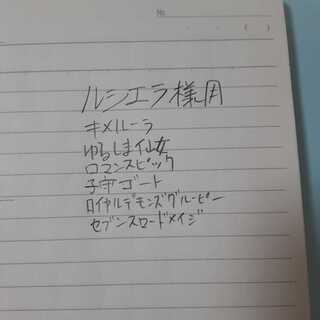 No.
ルシエラ様用
キメルーラ
ゆるしま仙女
ロマンスピック
子守ゴート
ロイヤルデモンズグルーピー
セブンスロードメイジ